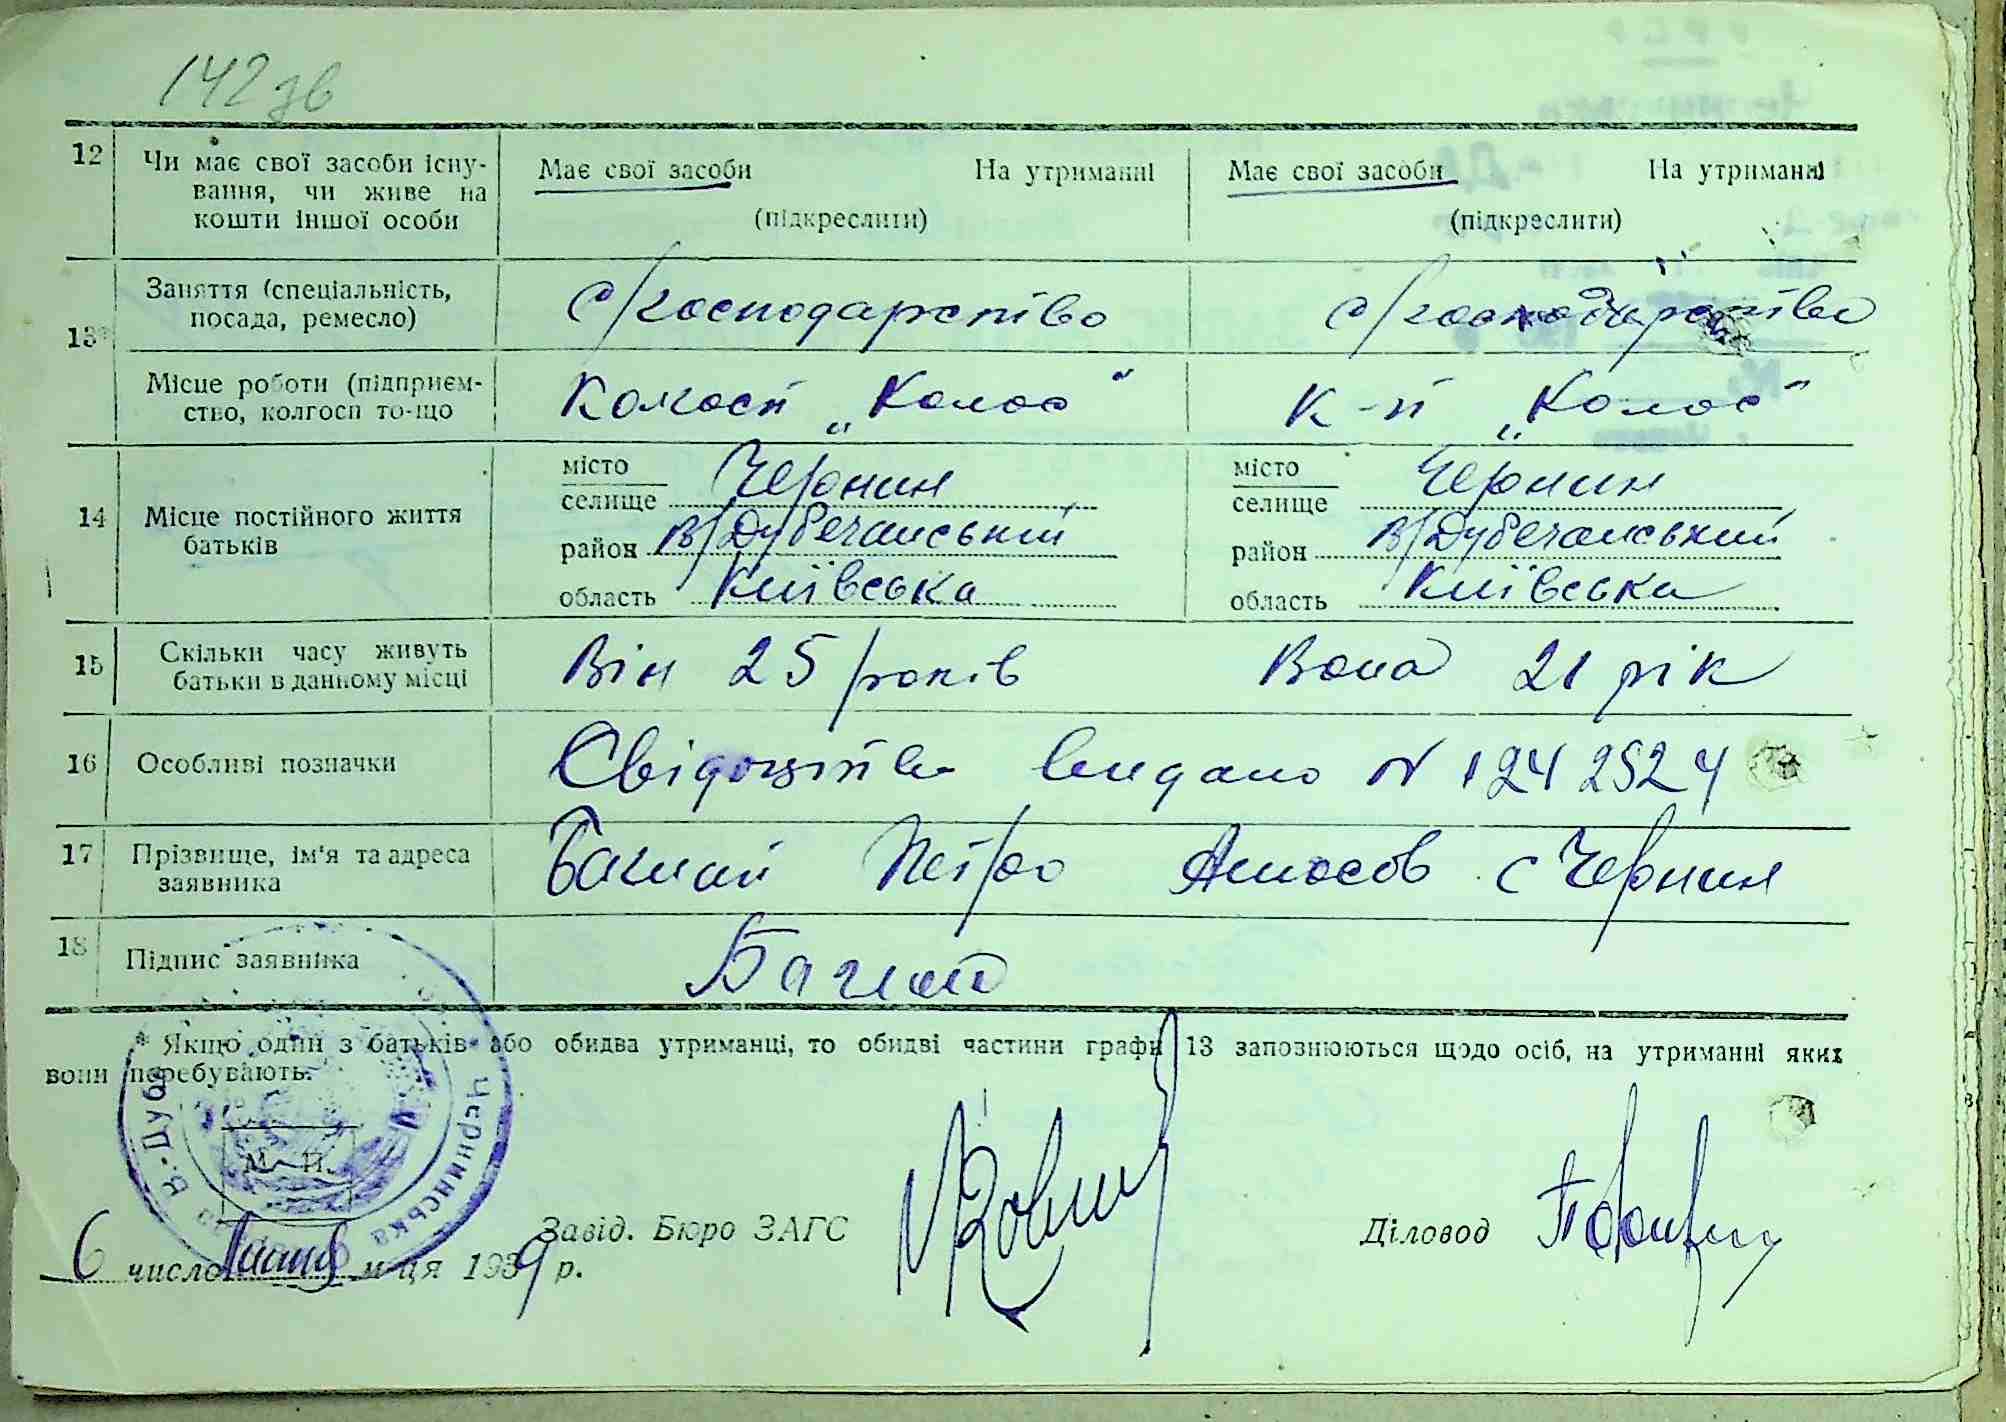 142 зв
12 Чи має свої засоби існу- Має свої засоби На утриманні Має свої засоби На утриманні
вання, чи живе на
кошти іншої особи (підкреслити) (підкреслити)
13* Заняття (спеціальність, с/господарство с/господарство
посада, ремесло)
Місце роботи (підприєм- Колгосп „Колос" К-п „Колос"
ство, колгосп то-що
14 Місце постійного життя батьків
місто
селище Чернин місто
селище Чернин
район В/Дубечанський район В/Дубечанський
область Київська область Київська
15 Скільки часу живуть Він 25 років Вона 21 рік
батьки в данному місці
16 Особливі позначки Свідоцтво видано N 1242524
17 Прізвище, ім'я та адреса Баглай Петро Амосов с Чернин
заявника
18 Підпис заявника Баглай
* Якщо один з батьків або обидва утриманці, то обидві частини графи 13 запознюються щодо осіб, на утриманні яких
вони перебувають.
Чернинська
В.-Дуб
М. П.
Завід. Бюро ЗАГС Діловод
6 число м-ця 1939 р.